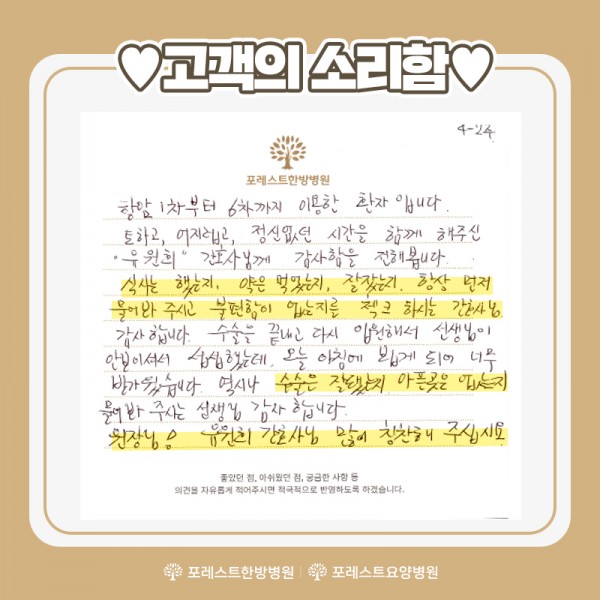 ♥고객의 소리함♥
4-24
포레스트한방병원
항암 1차부터 6차까지 이용한 환자입니다.
토하고, 어지럽고, 정신없던 시간을 함께 해주신
"유원희" 간호사님께 감사함을 전해봅니다.
식사는 했는지, 약은 먹었는지, 잘잤는지, 항상 먼저
물어봐 주시고 불편함이 없는지를 첵크 하시는 간호사님
감사합니다. 수술을 끝내고 다시 입원해서 선생님이
안보이셔서 섭섭했는데, 오늘 아침에 뵙게 되어 너무
반가웠습니다. 역시나 수술은 잘됐는지 아픈곳은 없는지
물어봐 주시는 선생님 감사합니다.
원장님 유원희 간호사님 많이 칭찬해 주십시요
좋았던 점, 아쉬웠던 점, 궁금한 사항 등
의견을 자유롭게 적어주시면 적극적으로 반영하도록 하겠습니다.
포레스트한방병원 | 포레스트요양병원